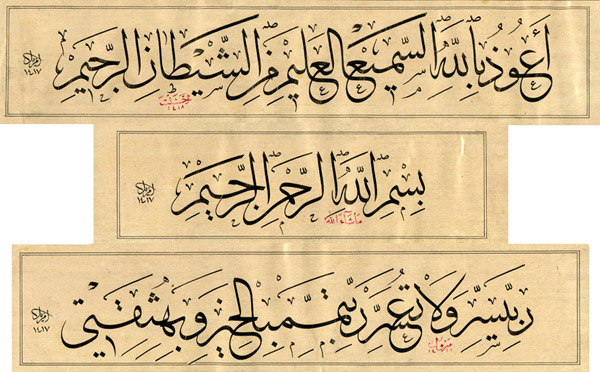 أَعُوذُ بِاللّٰهِ السَّمِيعِ الْعَلِيمِ مِنَ الشَّيْطَانِ الرَّجِيمِ
١٤١٧
بِسْمِ اللّٰهِ الرَّحْمٰنِ الرَّحِيمِ
مَاشَاءَ اللّٰه
١٤١٧
رَبِّ يَسِّرْ وَلَا تُعَسِّرْ رَبِّ تَمِّمْ بِالْخَيْرِ وَبِهِ ثِقَتِي
١٤١٧